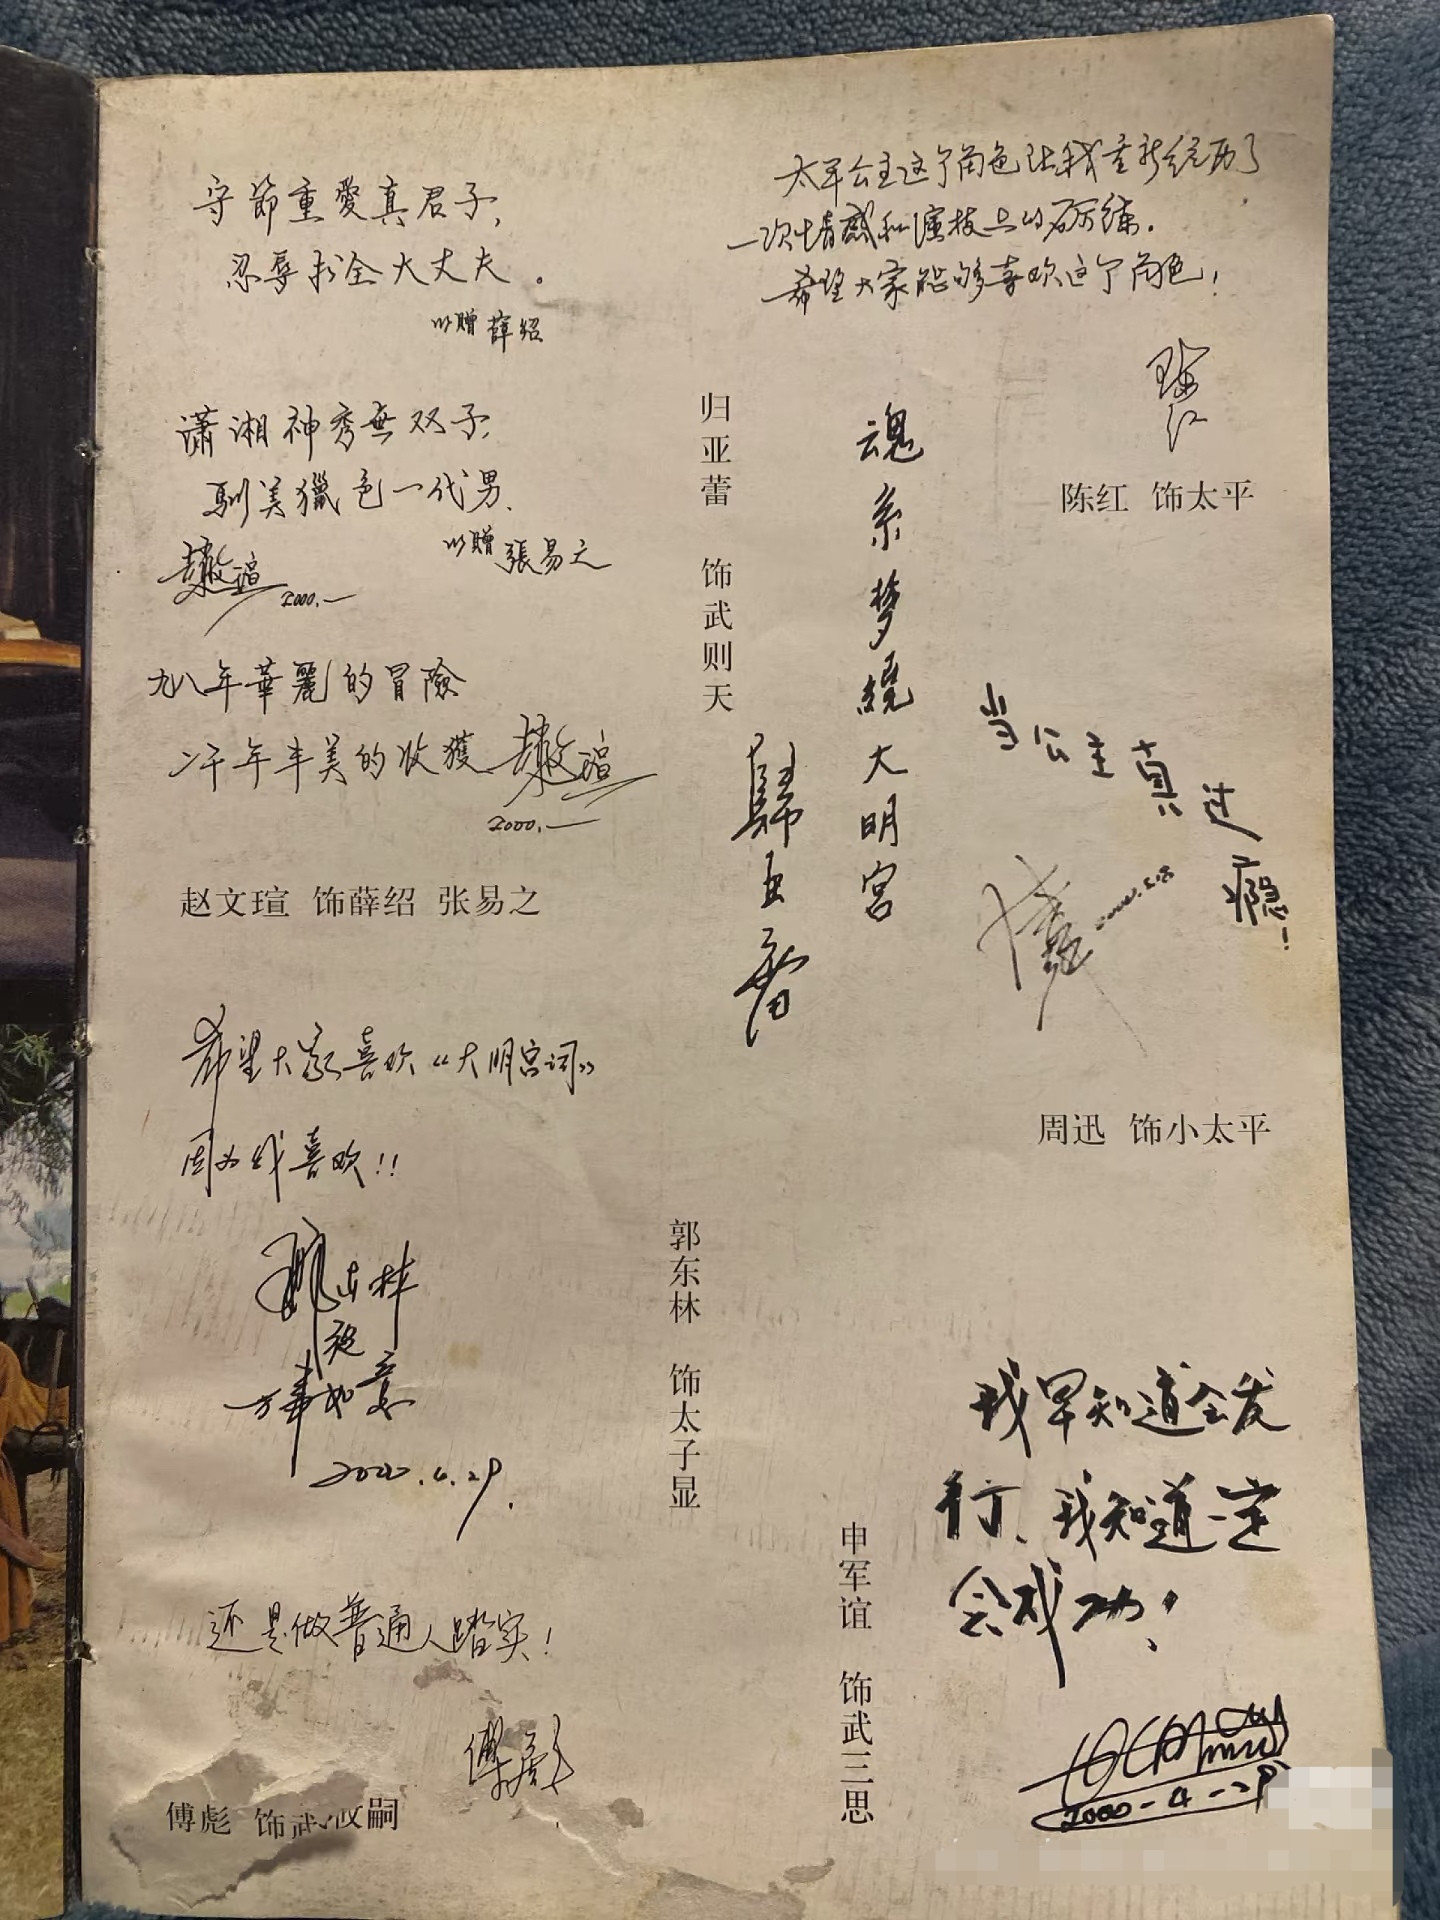 守節重愛真君子,
忍辱求全大丈夫。
以贈薛绍
潇湘神秀無双子,
馴美獵色一代男.
以贈張易之
趙文瑄
2000.
九八年華麗的冒險
二千年丰美的收獲
趙文瑄
2000.
赵文瑄 饰薛绍 张易之
太平公主这个角色让我重新经历了
一次情感和演技上的砺练.
希望大家能够喜欢这个角色!
陈红
陈红 饰太平
魂系梦繞大明宮
歸亚蕾
归亚蕾 饰武则天
当公主真过瘾!
周迅 饰小太平
希望大家喜欢《大明宫词》
因为我喜欢!!
郭东林
祝
万事如意
2000.4.29.
郭东林 饰太子显
我早知道会发
行、我知道一定
会成功!
2000-4-29
申军谊 饰武三思
还是做普通人踏实!
傅彪
傅彪 饰武攸嗣